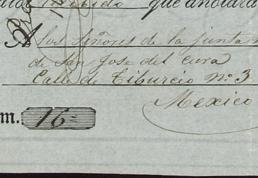 recibido que anotará
A los Señores de la Junta
de San Jose del Cura
Calle de Tiburcio nº 3
Mexico
m. 16=